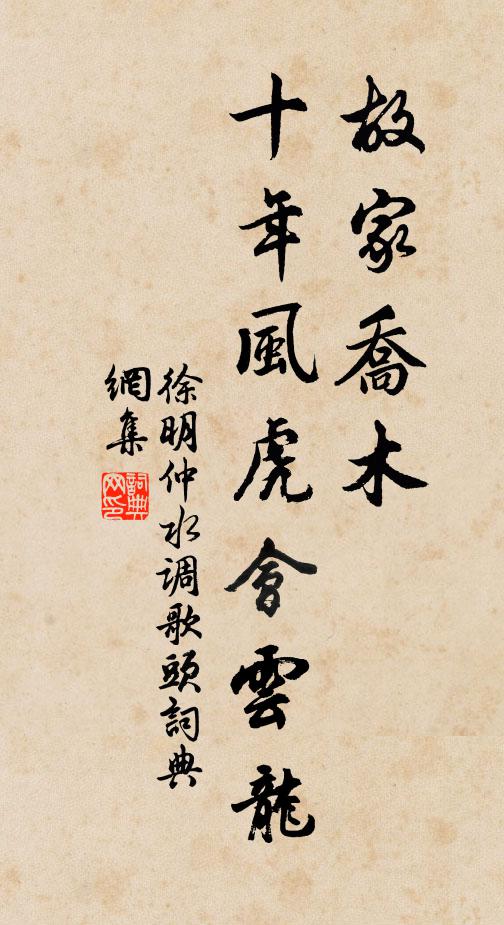 故家喬木
十年風虎會雲龍
徐明仲水调歌頭詞典
網集
詞典
网印